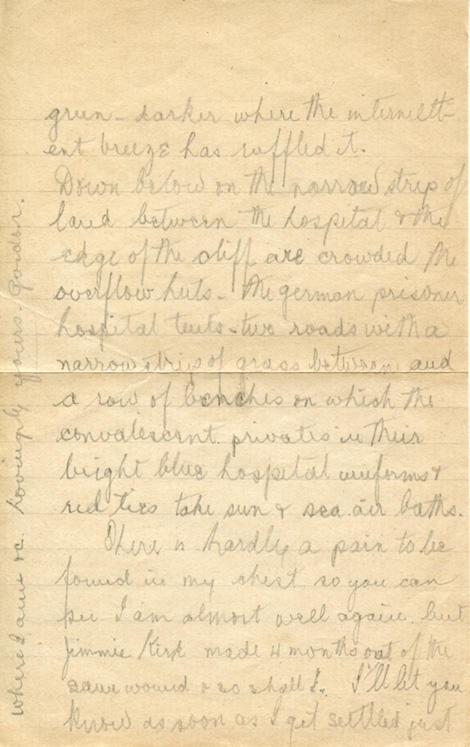 green - darker where the intermitt-
ent breeze has ruffled it.
Down below on the narrow strip of
land between the hospital & the
edge of the cliff are crowded the
overflow huts - the german prisoner
hospital tents - two roads with a
narrow strip of grass between and
a row of benches on which the
convalescent privates in their
bright blue hospital uniforms &
red ties take sun & sea air baths.
There is hardly a pain to be
found in my chest so you can
see I am almost well again. but
Jimmie Kirk made 4 months out of the
same wound & so shall I. I'll let you
know as soon as I get settled just
where I am &c. Lovingly yours - Gordon.